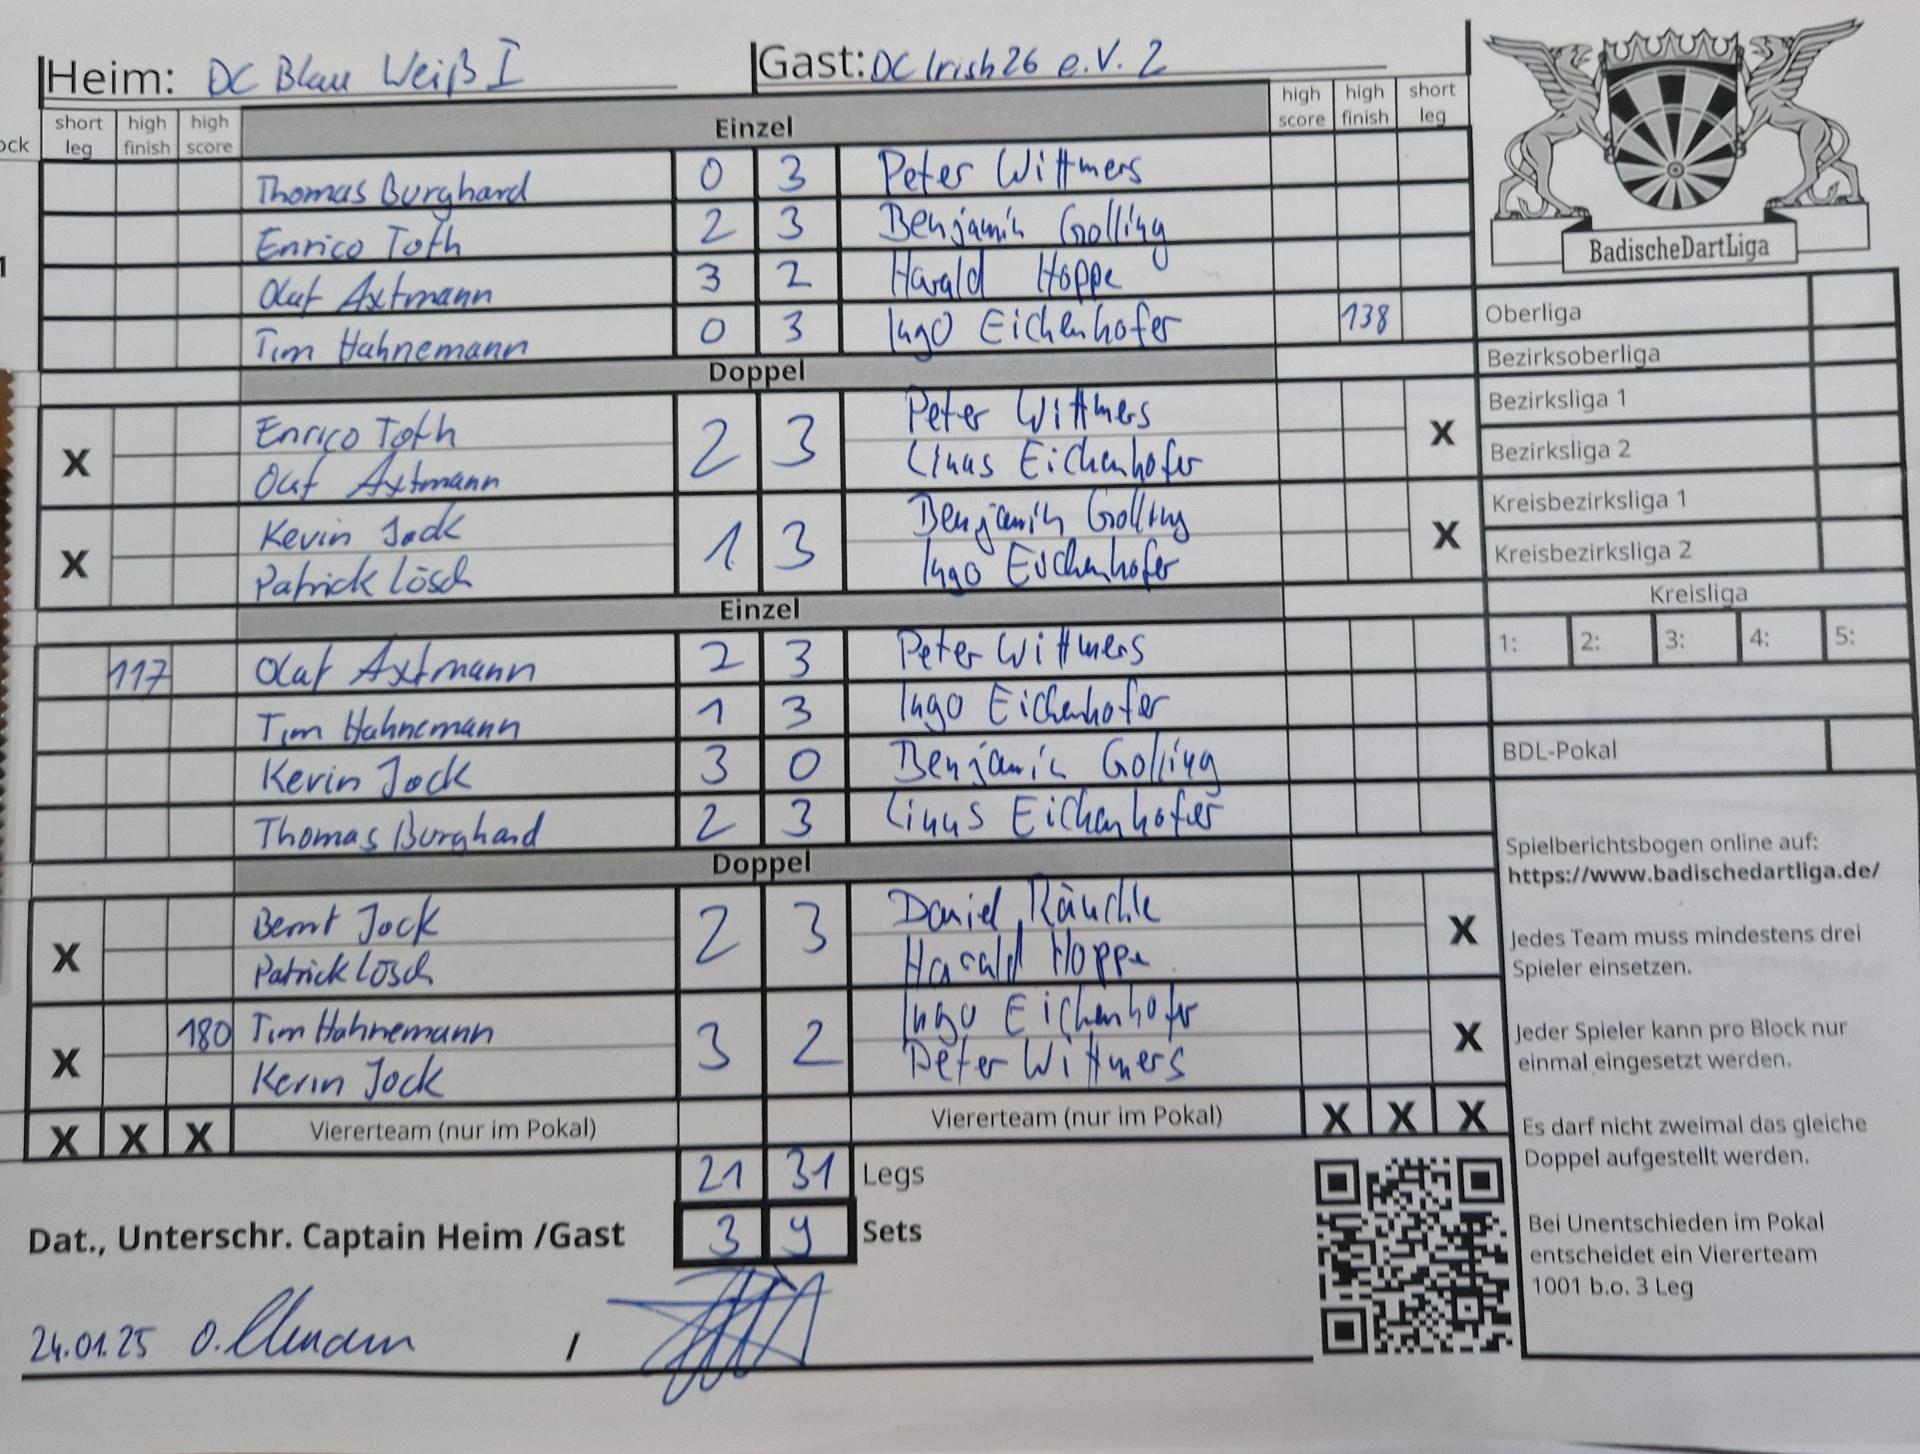 Heim: DC Blau Weiß I Gast: DC Irish 26 e.V. 2
ock short leg high finish high score Einzel high score high finish short leg
Thomas Burghard 0 3 Peter Wittmers
Enrico Toth 2 3 Benjamin Golling
1
Olaf Axtmann 3 2 Harald Hoppe
Tim Hahnemann 0 3 Ingo Eichenhofer 138
Doppel
X Enrico Toth 2 3 Peter Wittmers X
Olaf Axtmann Linus Eichenhofer
X Kevin Jock 1 3 Benjamin Golling X
Patrick Lösch Ingo Eichenhofer
Einzel
117 Olaf Axtmann 2 3 Peter Wittmers
Tim Hahnemann 1 3 Ingo Eichenhofer
Kevin Jock 3 0 Benjamin Golling
Thomas Burghard 2 3 Linus Eichenhofer
Doppel
X Bernt Jock 2 3 Daniel Räuchle X
Patrick Lösch Harald Hoppe
X 180 Tim Hahnemann 3 2 Ingo Eichenhofer X
Kevin Jock Peter Wittmers
X X X Viererteam (nur im Pokal) Viererteam (nur im Pokal) X X X
21 31 Legs
Dat., Unterschr. Captain Heim /Gast 3 9 Sets
24.01.25 /
BadischeDartLiga
Oberliga
Bezirksoberliga
Bezirksliga 1
Bezirksliga 2
Kreisbezirksliga 1
Kreisbezirksliga 2
Kreisliga
1: 2: 3: 4: 5:
BDL-Pokal
Spielberichtsbogen online auf:
https://www.badischedartliga.de/
Jedes Team muss mindestens drei
Spieler einsetzen.
Jeder Spieler kann pro Block nur
einmal eingesetzt werden.
Es darf nicht zweimal das gleiche
Doppel aufgestellt werden.
Bei Unentschieden im Pokal
entscheidet ein Viererteam
1001 b.o. 3 Leg